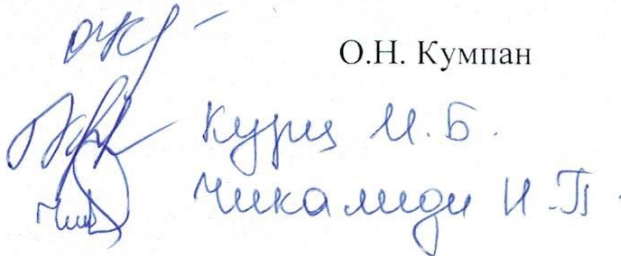 О.Н. Кумпан
Курц И.Б.
Чикалиди И.П.